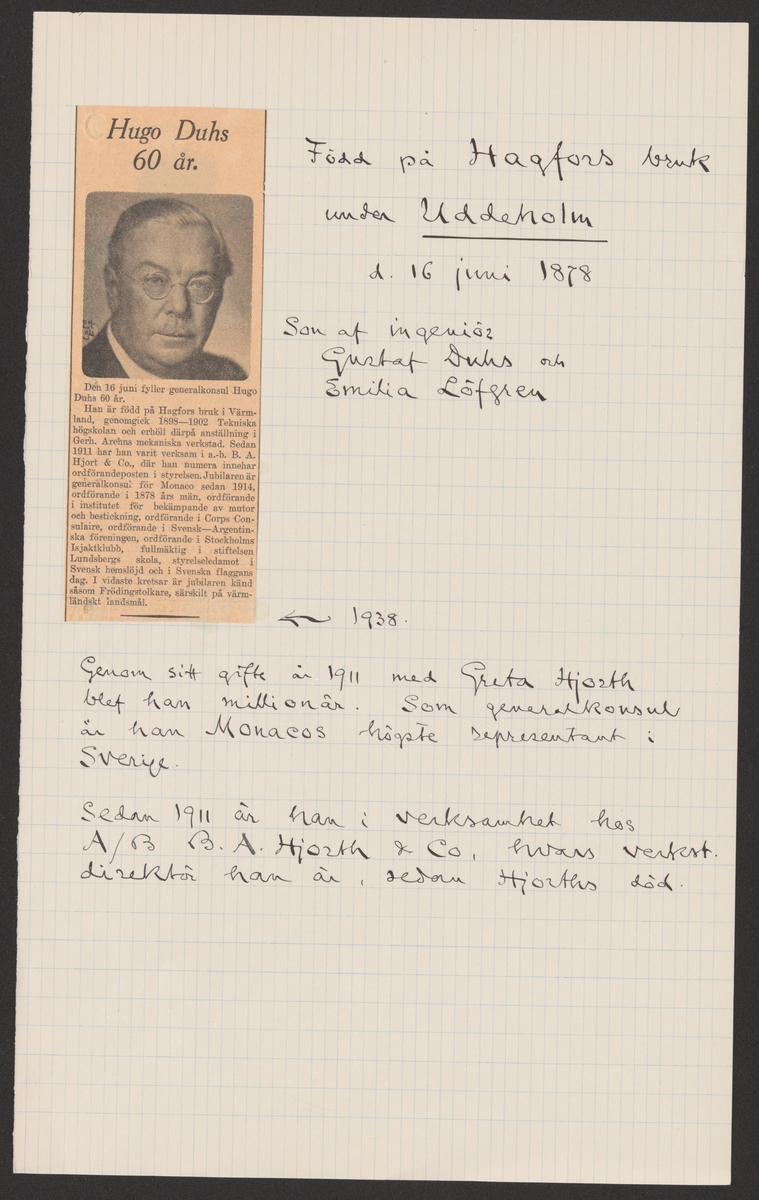 Hugo Duhs
60 år.
Den 16 juni fyller generalkonsul Hugo
Duhs 60 år.
Han är född på Hagfors bruk i Värm-
land, genomgick 1898—1902 Tekniska
högskolan och erhöll därpå anställning i
Gerh. Arehns mekaniska verkstad. Sedan
1911 har han varit verksam i a.-b. B. A.
Hjort & Co., där han numera innehar
ordförandeposten i styrelsen. Jubilaren är
generalkonsul för Monaco sedan 1914,
ordförande i 1878 års män, ordförande
i institutet för bekämpande av mutor
och bestickning, ordförande i Corps Con-
sulaire, ordförande i Svensk—Argentin-
ska föreningen, ordförande i Stockholms
Isjaktklubb, fullmäktig i stiftelsen
Lundsbergs skola, styrelseledamot i
Svensk hemslöjd och i Svenska flaggans
dag. I vidaste kretsar är jubilaren känd
såsom Frödingstolkare, särskilt på värm-
ländskt landsmål.
Född på Hagfors bruk
under Uddeholm
d. 16 juni 1878
Son af ingeniör
Gustaf Duhs och
Emilia Löfgren
← 1938.
Genom sitt gifte år 1911 med Greta Hjorth
blef han millionär. Som generalkonsul
är han Monacos högste representant i
Sverige.
Sedan 1911 är han i verksamhet hos
A/B B. A. Hjorth & Co, hvars verkst.
direktör han är, sedan Hjorths död.